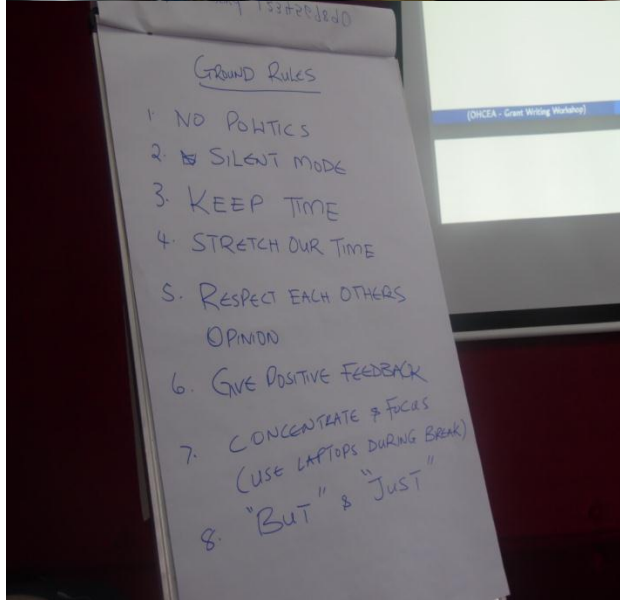 GROUND RULES
1. NO POLITICS
2. SILENT MODE
3. KEEP TIME
4. STRETCH OUR TIME
5. RESPECT EACH OTHERS
OPINION
6. GIVE POSITIVE FEEDBACK
7. CONCENTRATE & FOCUS
(USE LAPTOPS DURING BREAK)
8. "BUT" & "JUST"
[OHCEA - Grant Writing Workshop]